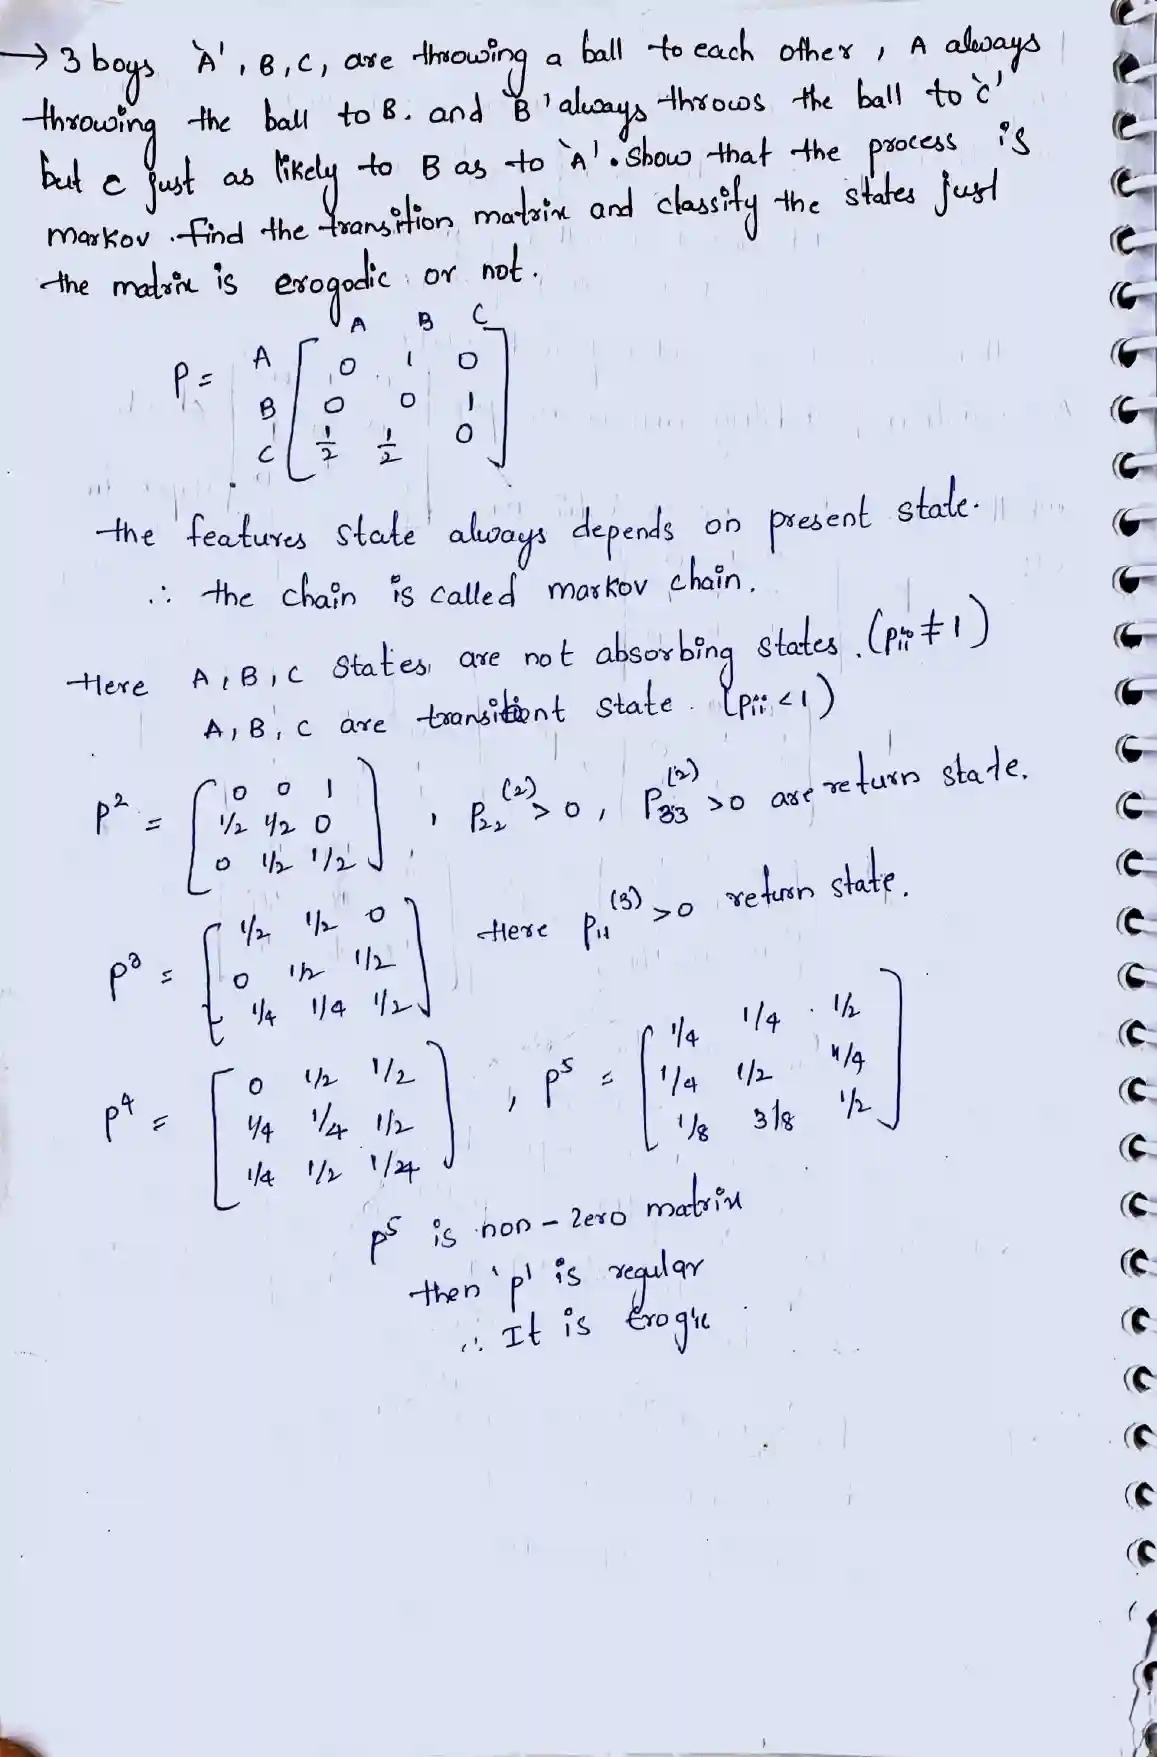 → 3 boys `A', B, C, are throwing a ball to each other, A always
throwing the ball to B. and `B' always throws the ball to `c'
but c just as likely to B as to `A'. Show that the process is
markov. find the transition matrix and classify the states just
the matrix is erogodic or not.
A B C
P = A [ 0 1 0
B 0 0 1
C 1/2 1/2 0 ]
the features state always depends on present state.
∴ the chain is called markov chain.
Here A, B, C states are not absorbing states. (Pii ≠ 1)
A, B, C are transitient state. (Pii < 1)
P² = [ 0 0 1
1/2 1/2 0
0 1/2 1/2 ] , P₂₂⁽²⁾ > 0, P₃₃⁽²⁾ > 0 are return state.
P³ = [ 1/2 1/2 0
0 1/2 1/2
1/4 1/4 1/2 ] Here P₁₁⁽³⁾ > 0 return state.
P⁴ = [ 0 1/2 1/2
1/4 1/4 1/2
1/4 1/2 1/4 ] , P⁵ = [ 1/4 1/4 1/2
1/4 1/2 1/4
1/8 3/8 1/2 ]
P⁵ is non-zero matrix
then 'p' is regular
∴ It is Erogic